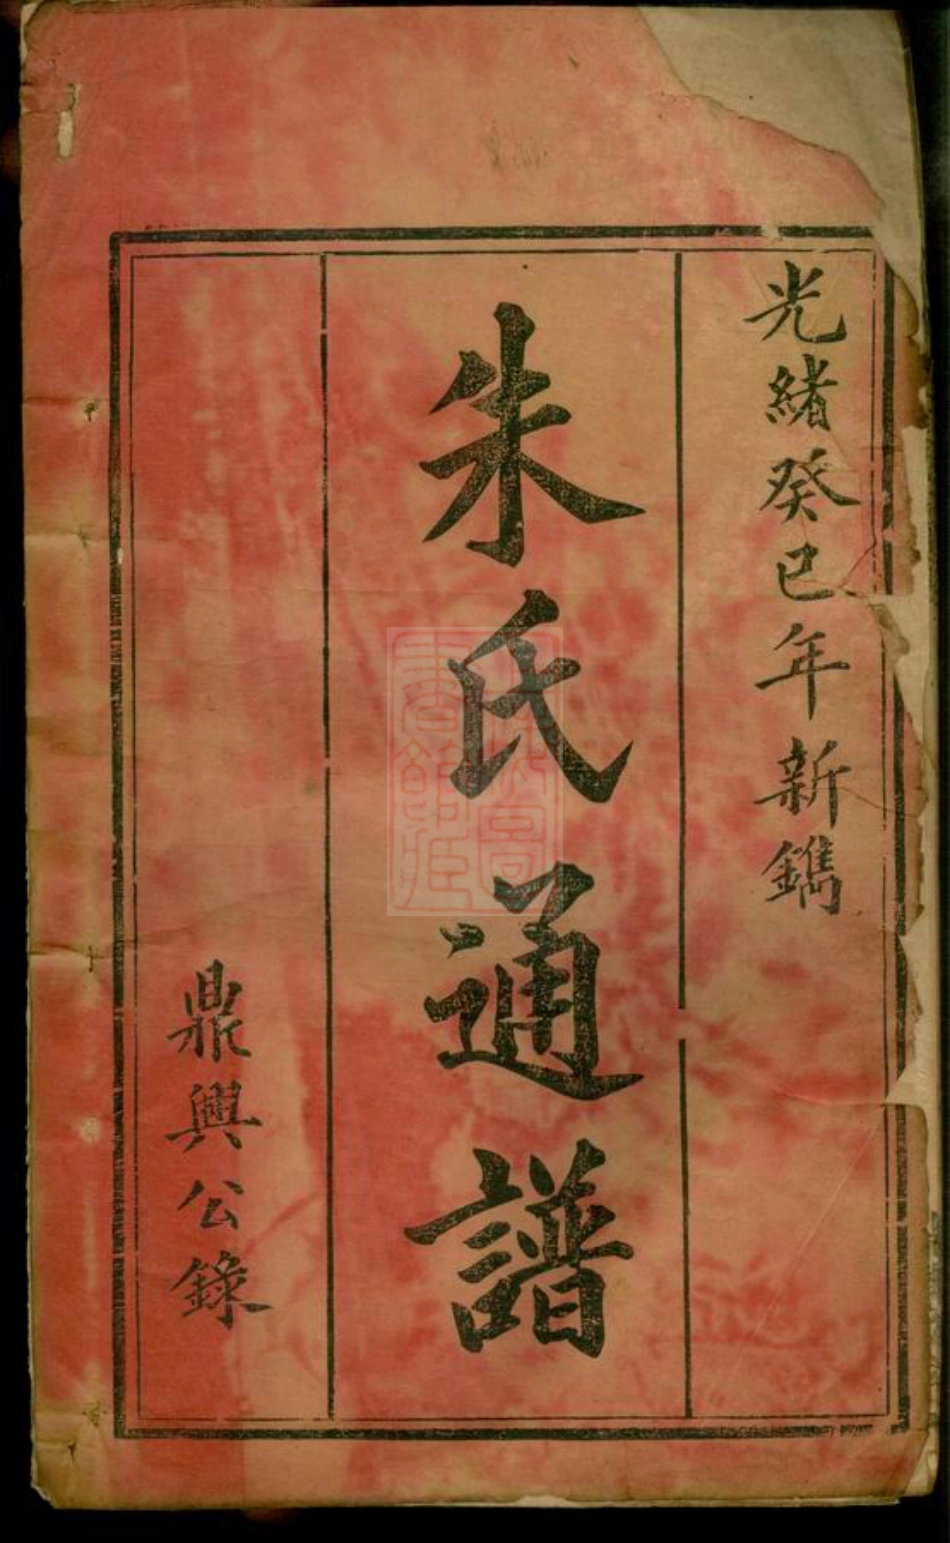 光緒癸巳年新鐫
朱氏通譜
鼎興公錄